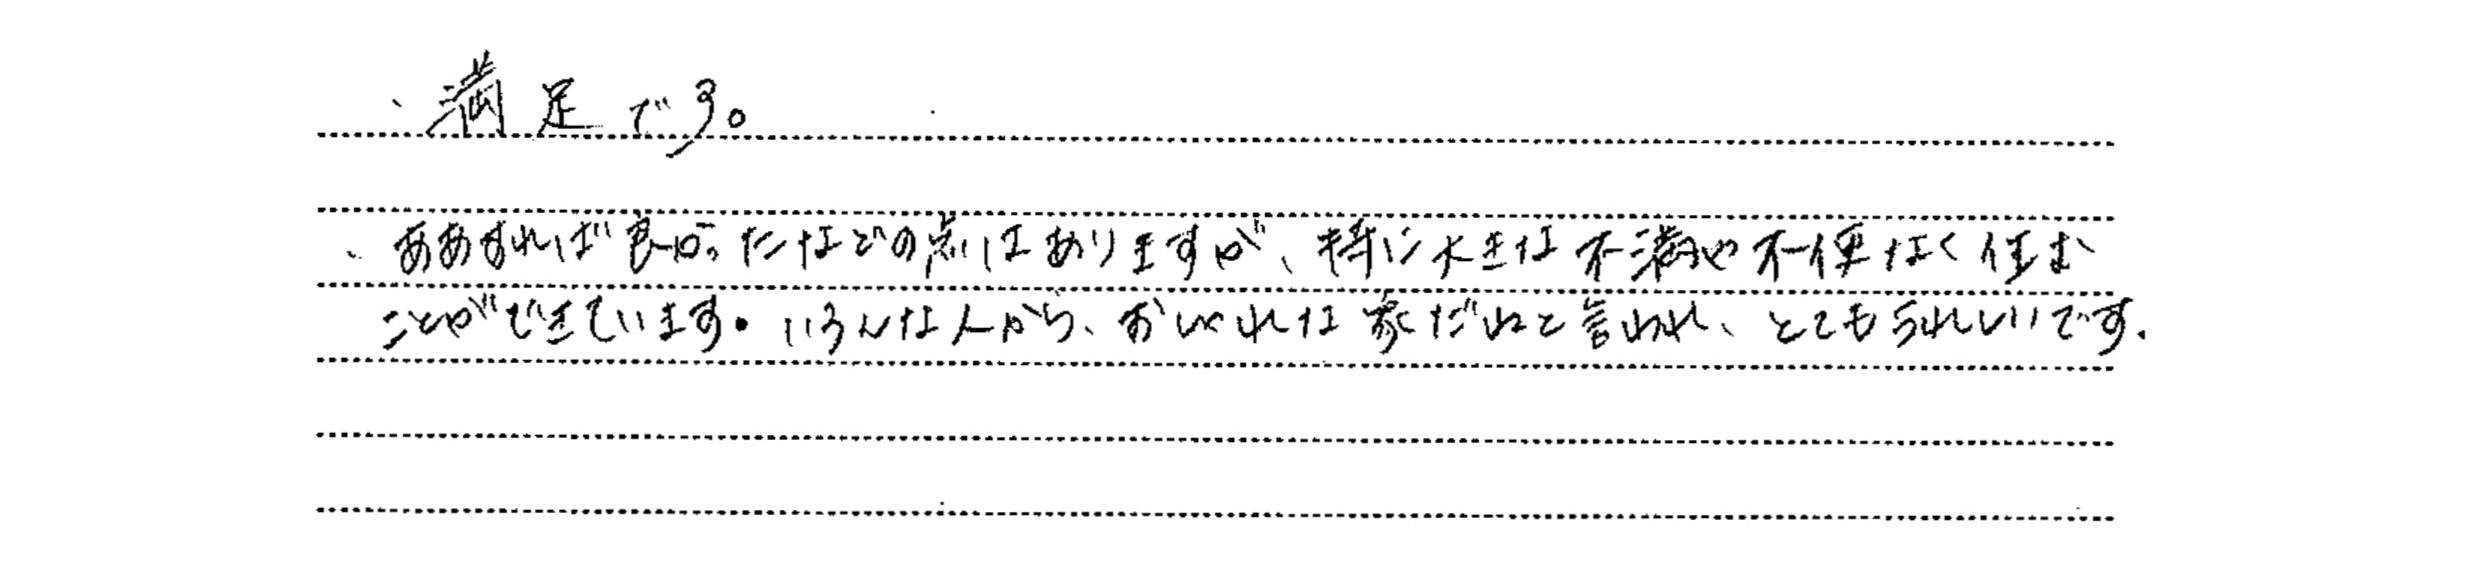 、満足です。
、ああすれば良かったなどの点はありますが、特に大きな不満や不便なく住む
ことができています。いろんな人から、おしゃれな家だねと言われ、とてもうれしいです.